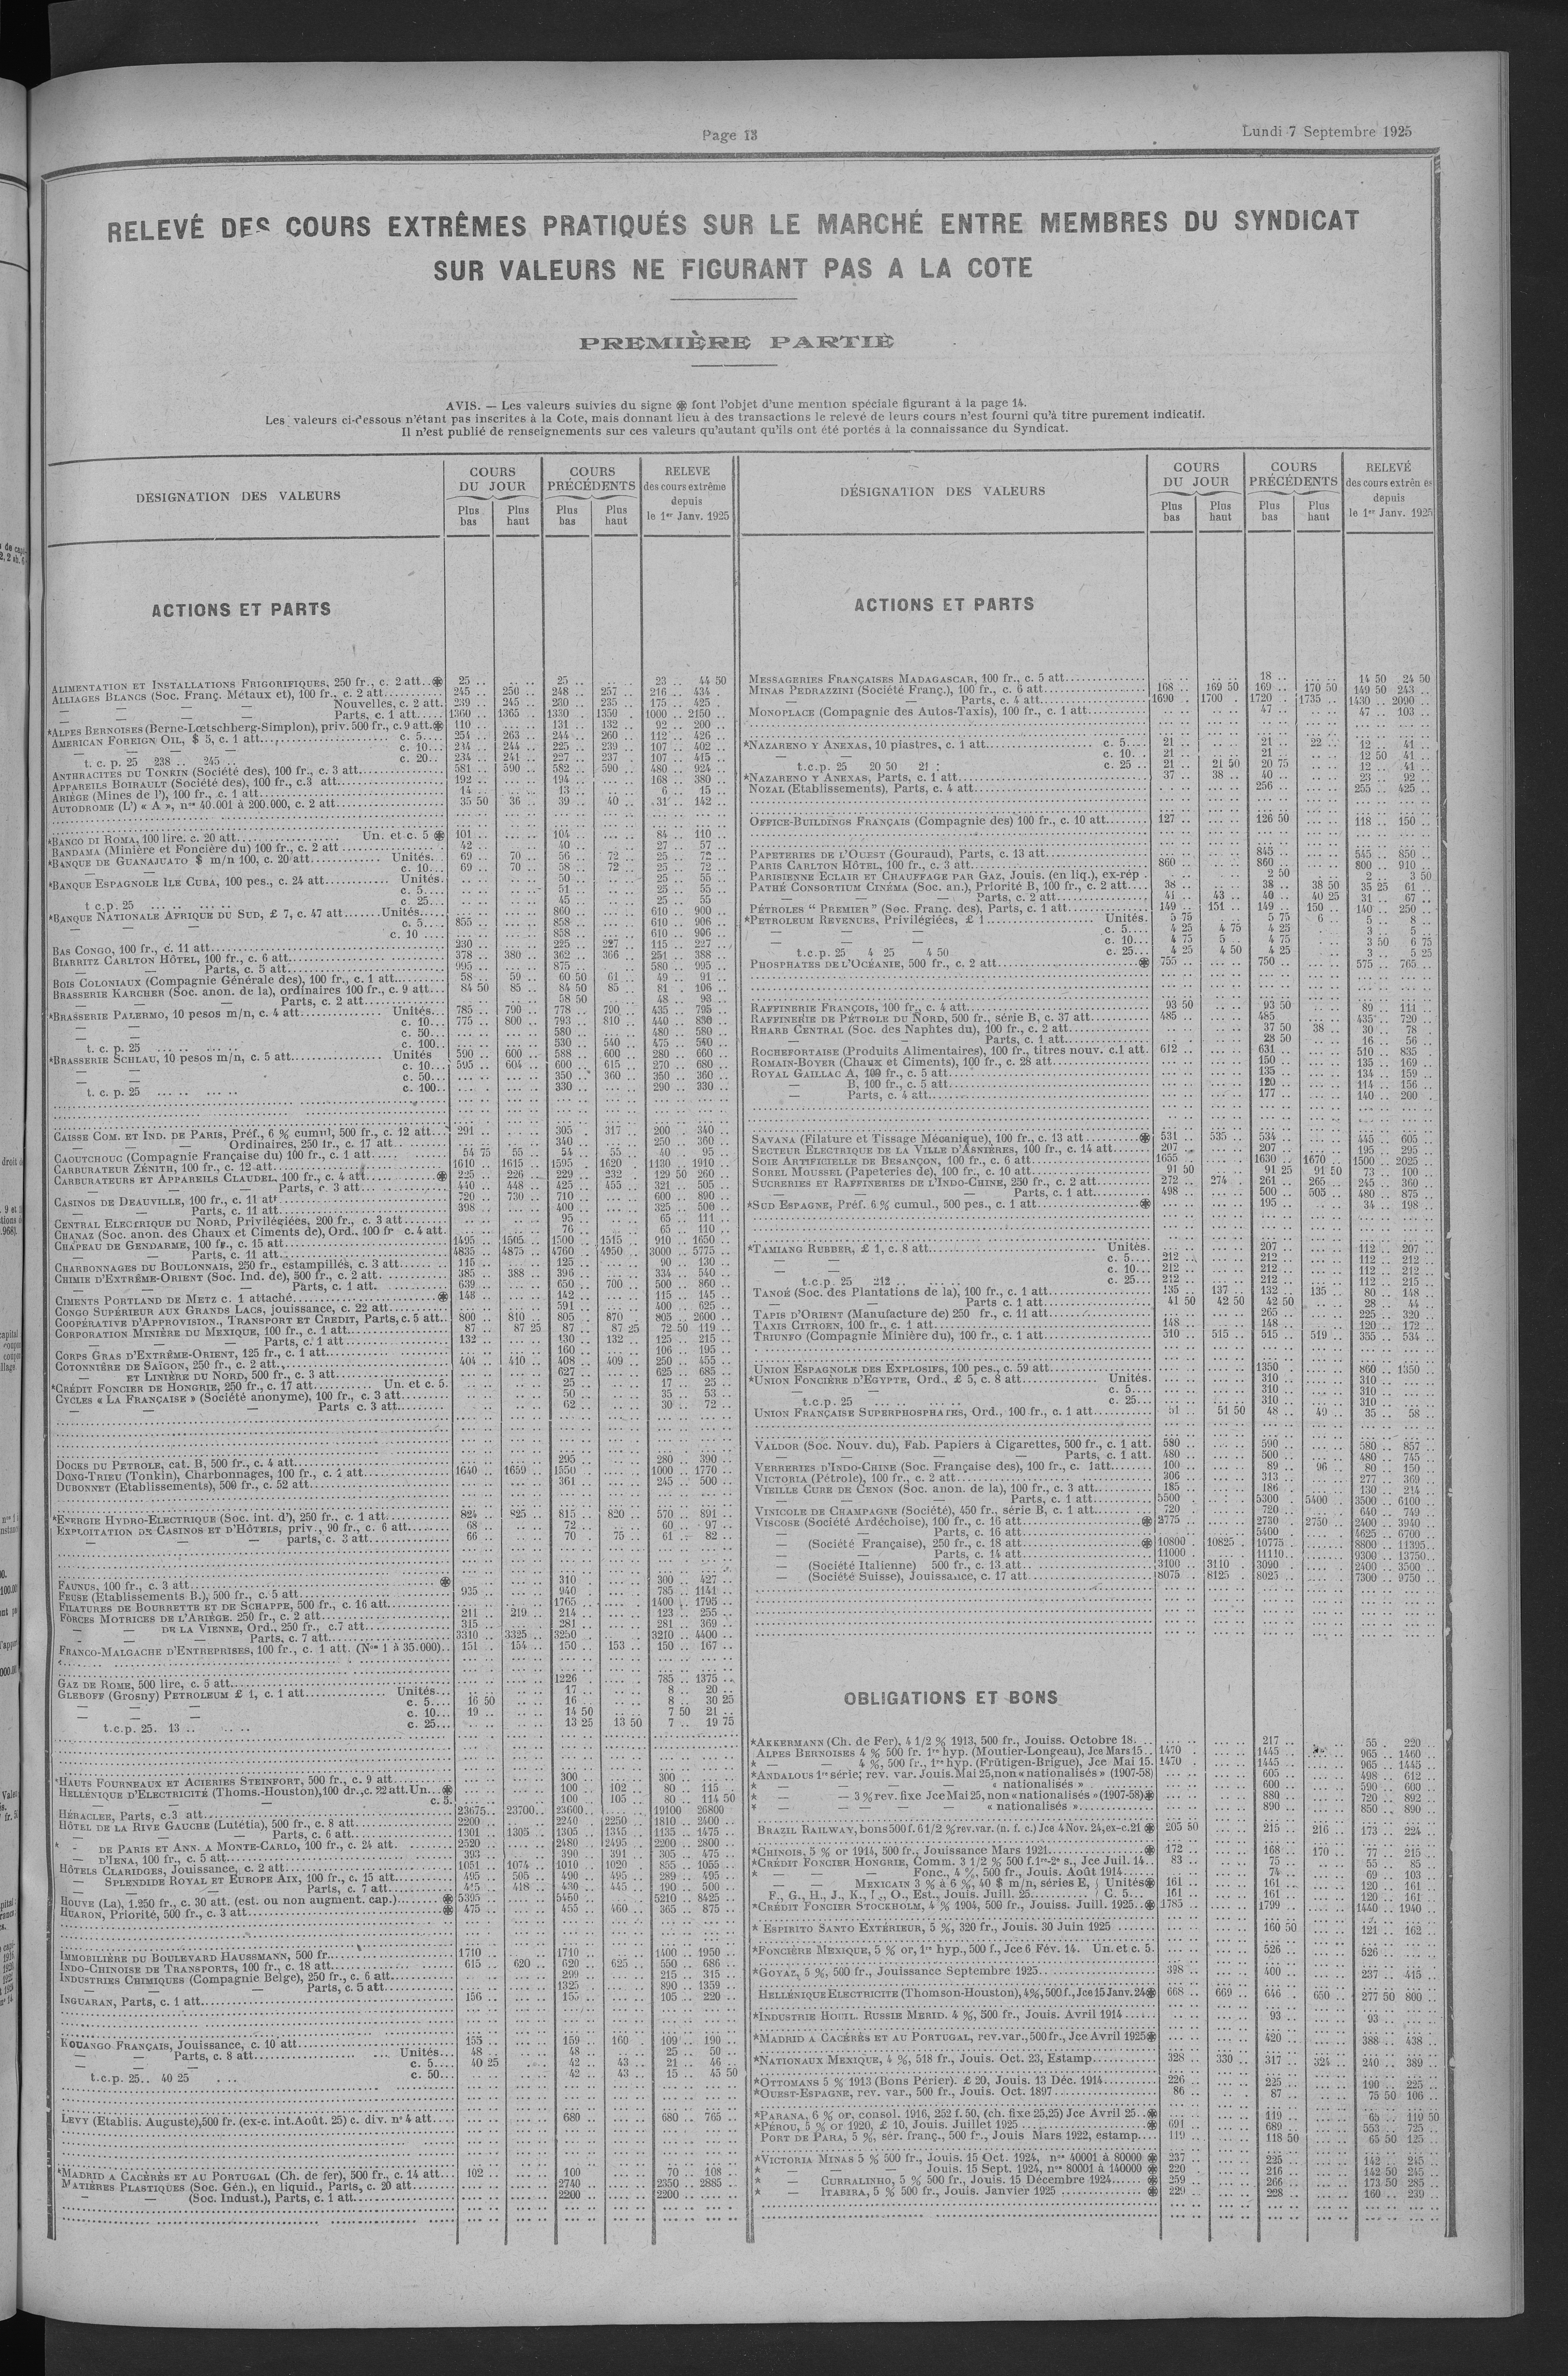 Page 13
Lundi 7 Septembre 1925
RELEVÉ DES COURS EXTRÊMES PRATIQUÉS SUR LE MARCHÉ ENTRE MEMBRES DU SYNDICAT
SUR VALEURS NE FIGURANT PAS A LA COTE
PREMIÈRE PARTIE
AVIS. — Les valeurs suivies du signe ⊛ font l'objet d'une mention spéciale figurant à la page 14.
Les valeurs ci-dessous n'étant pas inscrites à la Cote, mais donnant lieu à des transactions le relevé de leurs cours n'est fourni qu'à titre purement indicatif.
Il n'est publié de renseignements sur ces valeurs qu'autant qu'ils ont été portés à la connaissance du Syndicat.
DÉSIGNATION DES VALEURS
COURS DU JOUR
Plus bas
Plus haut
COURS PRÉCÉDENTS
Plus bas
Plus haut
RELEVE des cours extrême depuis le 1er Janv. 1925
ACTIONS ET PARTS
ALIMENTATION ET INSTALLATIONS FRIGORIFIQUES, 250 fr., c. 2 att. ⊛ 25 .. 25 .. 23 .. 44 50
ALLIAGES BLANCS (Soc. Franç. Métaux et), 100 fr., c. 2 att. 245 .. 250 .. 248 .. 257 .. 216 .. 434 .
— — — Nouvelles, c. 2 att. 239 .. 245 .. 230 .. 235 .. 175 .. 425 .
— — — Parts, c. 1 att. 1360 .. 1365 .. 1330 .. 1350 .. 1000 .. 2150 ..
*ALPES BERNOISES (Berne-Lœtschberg-Simplon), priv. 500 fr., c. 9 att. ⊛ 110 .. 131 .. 132 .. 92 .. 200 ..
AMERICAN FOREIGN OIL, $ 5, c. 1 att. c. 5 254 .. 263 .. 244 .. 260 .. 112 .. 426 ..
— — — c. 10 234 .. 244 .. 225 .. 239 .. 107 .. 402 ..
t. c. p. 25 238 .. 245 .. c. 20 234 .. 241 .. 227 .. 237 .. 107 .. 415 ..
ANTHRACITES DU TONKIN (Société des), 100 fr., c. 3 att. 581 .. 590 .. 582 .. 590 .. 480 .. 924 ..
APPAREILS BOIRAULT (Société des), 100 fr., c.3 att. 192 .. 194 .. 168 .. 380 ..
ARIÈGE (Mines de l'), 100 fr., c. 1 att. 14 .. 13 .. 6 .. 15 ..
AUTODROME (L') « A », nos 40.001 à 200.000, c. 2 att. 35 50 36 .. 39 .. 40 .. 31 .. 142 ..
*BANCO DI ROMA, 100 lire. c. 20 att. Un. et c. 5 ⊛ 101 .. 104 .. 84 .. 110 ..
BANDAMA (Minière et Foncière du) 100 fr., c. 2 att 42 .. 40 .. 27 .. 57 ..
*BANQUE DE GUANAJUATO $ m/n 100, c. 20 att. Unités 69 .. 70 .. 56 .. 72 .. 25 .. 72 ..
c. 10 69 .. 70 .. 58 .. 72 .. 25 .. 72 ..
*BANQUE ESPAGNOLE ILE CUBA, 100 pes., c. 24 att. Unités. 50 .. 25 .. 55 ..
c. 5 51 .. 25 .. 55 ..
t c.p. 25 c. 25 45 .. 25 .. 55
*BANQUE NATIONALE AFRIQUE DU SUD, £ 7, c. 47 att. Unités 860 .. 610 .. 900 ..
c. 5 855 .. 858 .. 610 .. 906 ..
c. 10 858 .. 610 .. 906 ..
BAS CONGO, 100 fr., c. 11 att. 230 .. 225 .. 227 .. 115 .. 227 ..
BIARRITZ CARLTON HÔTEL, 100 fr., c. 6 att. 378 .. 380 .. 362 .. 366 .. 251 .. 388 ..
— — Parts, c. 5 att. 995 .. 875 .. 580 .. 995 ..
BOIS COLONIAUX (Compagnie Générale des), 100 fr., c. 1 att. 58 .. 59 .. 60 50 61 .. 49 .. 91 ..
BRASSERIE KARCHER (Soc. anon. de la), ordinaires 100 fr., c. 9 att. 84 50 85 .. 84 50 85 .. 81 .. 106 ..
— — — Parts, c. 2 att. 58 50 48 .. 93 ..
*BRASSERIE PALERMO, 10 pesos m/n, c. 4 att. Unités 785 .. 790 .. 778 .. 790 .. 435 .. 795 ..
— c. 10 775 .. 800 .. 793 .. 810 .. 440 .. 830 ..
— c. 50 580 .. 480 .. 580 ..
t. c. p. 25 c. 100 530 .. 540 .. 475 .. 540 ..
*BRASSERIE SCHLAU, 10 pesos m/n, c. 5 att. Unités 590 .. 600 .. 588 .. 600 .. 280 .. 660 ..
— c. 10 595 .. 604 .. 600 .. 615 .. 270 .. 680 ..
— c. 50 350 .. 360 .. 350 .. 360 ..
t. c. p. 25 c. 100 330 .. 290 .. 330 ..
CAISSE COM. ET IND. DE PARIS, Préf., 6 % cumul, 500 fr., c. 12 att. 291 .. 305 .. 317 .. 200 .. 340 ..
— — Ordinaires, 250 fr., c. 17 att. 340 .. 250 .. 360 ..
CAOUTCHOUC (Compagnie Française du) 100 fr., c. 1 att. 54 75 55 .. 54 .. 55 .. 40 .. 95 ..
CARBURATEUR ZÉNITH, 100 fr., c. 12 att. 1610 .. 1615 .. 1595 .. 1620 .. 1130 .. 1910 ..
CARBURATEURS ET APPAREILS CLAUDEL, 100 fr., c. 4 att. ⊛ 225 .. 226 .. 229 .. 232 .. 129 50 260 ..
— — Parts, c. 3 att. 440 .. 448 .. 425 .. 455 .. 321 .. 505 ..
CASINOS DE DEAUVILLE, 100 fr., c. 11 att 720 .. 730 .. 710 .. 600 .. 890 ..
— — Parts, c. 11 att. 398 .. 400 .. 325 .. 500 ..
CENTRAL ELECTRIQUE DU NORD, Privilégiées, 200 fr., c. 3 att. 95 .. 65 .. 111 ..
CHANAZ (Soc. anon. des Chaux et Ciments de), Ord., 100 fr c. 4 att. 76 .. 65 .. 110 ..
CHAPEAU DE GENDARME, 100 fr., c. 15 att. 1495 .. 1505 .. 1500 .. 1515 .. 910 .. 1650 ..
— — Parts, c. 11 att. 4835 .. 4875 .. 4760 .. 4950 .. 3000 .. 5775 ..
CHARBONNAGES DU BOULONNAIS, 250 fr., estampillés, c. 3 att. 115 .. 125 .. 90 .. 130 ..
CHIMIE D'EXTRÊME-ORIENT (Soc. Ind. de), 500 fr., c. 2 att. 385 .. 388 .. 396 .. 334 .. 540 ..
— — — Parts, c. 1 att. 639 .. 650 .. 700 .. 500 .. 860 ..
CIMENTS PORTLAND DE METZ c. 1 attaché ⊛ 148 .. 142 .. 115 .. 145 ..
CONGO SUPÉRIEUR AUX GRANDS LACS, jouissance, c. 22 att. 591 .. 400 .. 625 ..
COOPÉRATIVE D'APPROVISION., TRANSPORT ET CREDIT, Parts, c. 5 att. 800 .. 810 .. 805 .. 870 .. 805 .. 2000 ..
CORPORATION MINIÈRE DU MEXIQUE, 100 fr., c. 1 att. 87 .. 87 25 87 .. 87 25 72 50 119 ..
— — — Parts, c. 1 att. 132 .. 130 .. 132 .. 125 .. 215 ..
CORPS GRAS D'EXTRÊME-ORIENT, 125 fr., c. 1 att. 160 .. 106 .. 195 ..
COTONNIÈRE DE SAÏGON, 250 fr., c. 2 att. 404 .. 410 .. 408 .. 409 .. 250 .. 455 ..
— ET LINIÈRE DU NORD, 500 fr., c. 3 att. 627 .. 625 .. 685 ..
*CRÉDIT FONCIER DE HONGRIE, 250 fr., c. 17 att. Un. et c. 5. 25 .. 17 .. 25 ..
CYCLES « LA FRANÇAISE » (Société anonyme), 100 fr., c. 3 att. 50 .. 35 .. 53 ..
— — — Parts c. 3 att. 62 .. 30 .. 72 ..
DOCKS DU PETROLE, cat. B, 500 fr., c. 4 att. 295 .. 280 .. 390 ..
DONG-TRIEU (Tonkin), Charbonnages, 100 fr., c. 1 att. 1640 .. 1659 .. 1550 .. 1000 .. 1770 ..
DUBONNET (Etablissements), 500 fr., c. 52 att. 361 .. 245 .. 500 ..
*ENERGIE HYDRO-ELECTRIQUE (Soc. int. d'), 250 fr., c. 1 att. 824 .. 825 .. 815 .. 820 .. 570 .. 891 ..
EXPLOITATION DE CASINOS ET D'HÔTELS, priv., 90 fr., c. 6 att. 68 .. 72 .. 60 .. 97 ..
— — parts, c. 3 att. 66 .. 70 .. 75 .. 61 .. 82 ..
FAUNUS, 100 fr., c. 3 att. ⊛ 310 .. 300 .. 427 ..
FEUSE (Etablissements B.), 500 fr., c. 5 att. 935 .. 940 .. 785 .. 1141 ..
FILATURES DE BOURRETTE ET DE SCHAPPE, 500 fr., c. 16 att. 1765 .. 1400 .. 1795 ..
FORCES MOTRICES DE L'ARIÈGE. 250 fr., c. 2 att. 211 .. 219 .. 214 .. 123 .. 255 ..
— — DE LA VIENNE, Ord., 250 fr., c.7 att. 315 .. 281 .. 281 .. 369 ..
— — — Parts, c. 7 att. 3310 .. 3325 .. 3250 .. 3210 .. 4400 ..
FRANCO-MALGACHE D'ENTREPRISES, 100 fr., c. 1 att. (Nos 1 à 35.000) 151 .. 154 .. 150 .. 153 .. 150 .. 167 ..
GAZ DE ROME, 500 lire, c. 5 att. 1226 .. 785 .. 1375 ..
GLEBOFF (Grosny) PETROLEUM £ 1, c. 1 att. Unités 17 .. 8 .. 20 ..
— — — c. 5 16 50 16 .. 8 .. 30 25
— — — c. 10 19 .. 14 50 7 50 21 ..
t.c.p. 25. 13 .. c. 25 13 25 13 50 7 .. 19 75
*HAUTS FOURNEAUX ET ACIERIES STEINFORT, 500 fr., c. 9 att. 300 .. 300 ..
HELLÉNIQUE D'ELECTRICITÉ (Thoms.-Houston), 100 dr., c. 22 att. Un. ⊛ 100 .. 102 .. 80 .. 115 ..
— — — c. 5. 100 .. 105 .. 80 .. 114 50
HÉRACLEE, Parts, c.3 att. 23675 .. 23700 .. 23600 .. 19100 .. 26800
HÔTEL DE LA RIVE GAUCHE (Lutétia), 500 fr., c. 8 att. 2200 .. 2240 .. 2250 .. 1810 .. 2400 ..
— — Parts, c. 6 att. 1301 .. 1305 .. 1305 .. 1345 .. 1135 .. 1475 ..
* - DE PARIS ET ANN. A MONTE-CARLO, 100 fr., c. 24 att. 2520 .. 2480 .. 2495 .. 2200 .. 2800 ..
— D'IENA, 100 fr., c. 5 att. 393 .. 390 .. 391 .. 305 .. 475 ..
HÔTELS CLARIDGES, Jouissance, c. 2 att. 1051 .. 1074 .. 1010 .. 1020 .. 855 .. 1055 ..
— SPLENDIDE ROYAL ET EUROPE AIX, 100 fr., c. 15 att. 495 .. 505 .. 490 .. 495 .. 289 .. 495 ..
— — — Parts, c. 7 att. 415 .. 418 .. 430 .. 445 .. 190 .. 500 ..
HOUVE (La), 1.250 fr., c. 30 att. (est. ou non augment. cap.) ⊛ 5395 .. 5450 .. 5210 .. 8425 ..
HUARON, Priorité, 500 fr., c. 3 att. ⊛ 475 .. 455 .. 460 .. 365 .. 875 ..
IMMOBILIÈRE DU BOULEVARD HAUSSMANN, 500 fr. 1710 .. 1710 .. 1400 .. 1950 ..
INDO-CHINOISE DE TRANSPORTS, 100 fr., c. 18 att. 615 .. 620 .. 620 .. 625 .. 550 .. 686 ..
INDUSTRIES CHIMIQUES (Compagnie Belge), 250 fr., c. 6 att. 299 .. 215 .. 315 ..
— — — Parts, c. 5 att. 1325 .. 890 .. 1359 ..
INGUARAN, Parts, c. 1 att. 156 .. 155 .. 105 .. 220 ..
KOUANGO FRANÇAIS, Jouissance, c. 10 att. 155 .. 159 .. 160 . 109 .. 190 ..
— — Parts, c. 8 att. Unités 48 .. 48 .. 25 .. 50 ..
— — c. 5 40 25 42 .. 43 .. 21 .. 46 ..
t.c.p. 25.. 40 25 c. 50 42 .. 43 .. 15 .. 45 50
LEVY (Etablis. Auguste), 500 fr. (ex-c. int. Août. 25) c. div. n° 4 att. 680 .. 680 .. 765 ..
*MADRID A CACÉRÈS ET AU PORTUGAL (Ch. de fer), 500 fr., c. 14 att. 102 .. 100 .. 70 .. 108 ..
MATIÈRES PLASTIQUES (Soc. Gén.), en liquid., Parts, c. 20 att. 2740 .. 2350 .. 2885 ..
— — (Soc. Indust.), Parts, c. 1 att. 2200 .. 2200 ..
DÉSIGNATION DES VALEURS
COURS DU JOUR
Plus bas
Plus haut
COURS PRÉCÉDENTS
Plus bas
Plus haut
RELEVÉ des cours extrêm es depuis le 1er Janv. 1925
ACTIONS ET PARTS
MESSAGERIES FRANÇAISES MADAGASCAR, 100 fr., c. 5 att. 18 .. 14 50 24 50
MINAS PEDRAZZINI (Société Franç.), 100 fr., c. 6 att. 168 .. 169 50 169 .. 170 50 149 50 243 ..
— Parts, c. 4 att. 1690 .. 1700 .. 1720 .. 1735 .. 1430 .. 2090 ..
MONOPLACE (Compagnie des Autos-Taxis), 100 fr., c. 1 att. 47 .. 47 .. 103 ..
*NAZARENO Y ANEXAS, 10 piastres, c. 1 att. c. 5 21 .. 21 .. 22 .. 12 .. 41 ..
— — c. 10 21 .. 21 .. 12 50 41 ..
t.c.p. 25 20 50 21 : c. 25 21 .. 21 50 20 75 12 .. 41 ..
*NAZARENO Y ANEXAS, Parts, c. 1 att. 37 .. 38 .. 40 .. 23 .. 92 ..
NOZAL (Etablissements), Parts, c. 4 att. 256 .. 255 .. 425 ..
OFFICE-BUILDINGS FRANÇAIS (Compagnie des) 100 fr., c. 10 att. 127 .. 126 50 118 .. 150 ..
PAPETERIES DE L'OUEST (Gouraud), Parts, c. 13 att. 845 .. 545 .. 850 ..
PARIS CARLTON HÔTEL, 100 fr., c. 3 att. 860 .. 860 .. 800 .. 910 ..
PARISIENNE ECLAIR ET CHAUFFAGE PAR GAZ, Jouis. (en liq.), ex-rép . 2 50 2 .. 3 50
PATHÉ CONSORTIUM CINÉMA (Soc. an.), Priorité B, 100 fr., c. 2 att. 38 .. 38 .. 38 50 35 25 61 ..
— — Parts, c. 2 att. 41 .. 43 .. 40 .. 40 25 31 .. 67 ..
PÉTROLES “ PREMIER” (Soc. Franç. des), Parts, c. 1 att. 149 .. 151 .. 149 .. 150 .. 140 .. 250 ..
*PETROLEUM REVENUES, Privilégiées, £ 1 Unités. 5 75 5 75 6 .. 5 .. 8 ..
— — — c. 5 4 25 4 75 4 25 3 .. 5 ..
— — — c. 10 4 75 5 .. 4 75 3 50 6 75
t.c.p. 25 4 25 4 50 c. 25 4 25 4 50 4 25 3 .. 5 25
PHOSPHATES DE L'OCÉANIE, 500 fr., c. 2 att. ⊛ 755 .. 750 .. 575 .. 765 ..
RAFFINERIE FRANÇOIS, 100 fr., c. 4 att. 93 50 93 50 89 .. 111 ..
RAFFINERIE DE PÉTROLE DU NORD, 500 fr., série B, c. 37 att. 485 .. 485 .. 435 .. 720 ..
RHARB CENTRAL (Soc. des Naphtes du), 100 fr., c. 2 att. 37 50 38 .. 30 .. 78 ..
— — Parts, c. 1 att. 28 50 16 .. 56 ..
ROCHEFORTAISE (Produits Alimentaires), 100 fr., titres nouv. c.1 att. 612 .. 631 .. 510 .. 835 ..
ROMAIN-BOYER (Chaux et Ciments), 100 fr., c. 28 att. 150 .. 135 .. 169 ..
ROYAL GAILLAC A, 100 fr., c. 5 att. 135 .. 134 .. 159 ..
— B, 100 fr., c. 5 att. 120 .. 114 .. 156 ..
— Parts, c. 4 att. 177 .. 140 .. 200 ..
SAVANA (Filature et Tissage Mécanique), 100 fr., c. 13 att ⊛ 531 .. 535 .. 534 .. 445 .. 605 ..
SECTEUR ELECTRIQUE DE LA VILLE D'ASNIÈRES, 100 fr., c. 14 att. 207 .. 207 .. 195 .. 295 ..
SOIE ARTIFICIELLE DE BESANÇON, 100 fr., c. 6 att. 1655 .. 1630 .. 1670 .. 1500 .. 2025 ..
SOREL MOUSSEL (Papeteries de), 100 fr., c. 10 att. 91 50 91 25 91 50 73 .. 100 ..
SUCRERIES ET RAFFINERIES DE L'INDO-CHINE, 250 fr., c. 2 att. 272 .. 274 .. 261 .. 265 .. 245 .. 360 ..
— — Parts, c. 1 att. 498 .. 500 .. 505 .. 480 .. 875 ..
*SUD ESPAGNE, Préf. 6 % cumul., 500 pes., c. 1 att. ⊛ 195 .. 34 .. 198 ..
*TAMIANG RUBBER, £ 1, c. 8 att. Unités. 207 .. 112 .. 207 ..
— — c. 5 212 .. 212 .. 112 .. 212 ..
— — c. 10 212 .. 212 .. 112 .. 212 ..
t.c.p. 25 212 .. c. 25 212 .. 212 .. 112 .. 215 ..
TANOÉ (Soc. des Plantations de la), 100 fr., c. 1 att. 135 .. 137 .. 132 .. 135 .. 80 .. 148 ..
— — Parts c. 1 att. 41 50 42 50 42 50 28 .. 44 ..
TAPIS D'ORIENT (Manufacture de) 250 fr., c. 11 att. 265 .. 225 .. 320 ..
TAXIS CITROEN, 100 fr., c. 1 att. 148 .. 148 .. 120 .. 172 ..
TRIUNFO (Compagnie Minière du), 100 fr., c. 1 att. 510 .. 515 .. 515 .. 519 .. 355 .. 534 ..
UNION ESPAGNOLE DES EXPLOSIFS, 100 pes., c. 59 att. 1350 .. 860 .. 1350 ..
*UNION FONCIÈRE D'EGYPTE, Ord., £ 5, c. 8 att. Unités. 310 .. 310 ..
— — c. 5 310 .. 310 ..
t.c.p. 25 c. 25 310 .. 310 ..
UNION FRANÇAISE SUPERPHOSPHATES, Ord., 100 fr., c. 1 att. 51 .. 51 50 48 .. 49 .. 35 .. 58 ..
VALDOR (Soc. Nouv. du), Fab. Papiers à Cigarettes, 500 fr., c. 1 att. 580 .. 590 .. 580 .. 857 ..
— — — Parts, c. 1 att. 480 .. 500 .. 480 .. 745 ..
VERRERIES D'INDO-CHINE (Soc. Française des), 100 fr., c. 1att. 100 .. 89 .. 96 .. 80 .. 150 ..
VICTORIA (Pétrole), 100 fr., c. 2 att. 306 .. 313 .. 277 .. 369 ..
VIEILLE CURE DE CENON (Soc. anon. de la), 100 fr., c. 3 att. 185 .. 186 .. 130 .. 214 ..
— — — Parts, c. 1 att. 5500 .. 5300 .. 5400 .. 3500 .. 6100 ..
VINICOLE DE CHAMPAGNE (Société), 450 fr., série B, c. 1 att. 720 .. 720 .. 640 .. 749 ..
VISCOSE (Société Ardéchoise), 100 fr., c. 16 att. ⊛ 2775 .. 2730 .. 2750 .. 2400 .. 3940 ..
— — Parts, c. 16 att. 5400 .. 4625 .. 6700 ..
— (Société Française), 250 fr., c. 18 att. ⊛ 10800 .. 10825 .. 10775 .. 8800 .. 11395 ..
— — Parts, c. 14 att. 11000 .. 11110 .. 9300 .. 13750 ..
— (Société Italienne) 500 fr., c. 13 att. 3100 .. 3110 .. 3090 .. 2400 .. 3500 ..
— (Société Suisse), Jouissance, c. 17 att. 8075 .. 8125 .. 8025 .. 7300 .. 9750 ..
OBLIGATIONS ET BONS
*AKKERMANN (Ch. de Fer), 4 1/2 % 1913, 500 fr., Jouiss. Octobre 18. 217 .. 55 .. 220 ..
ALPES BERNOISES 4 % 500 fr. 1re hyp. (Moutier-Longeau), Jce Mars 15 1470 .. 1445 .. 965 .. 1460 ..
* — — 4 %, 500 fr., 1re hyp. (Frütigen-Brigue), Jce Mai 15. 1470 .. 1445 .. 965 .. 1445 ..
*ANDALOUS 1re série; rev. var. Jouis. Mai 25, non « nationalisés » (1907-58) 605 .. 498 .. 612 ..
* — — — « nationalisés » 600 .. 590 .. 600 ..
* — — 3 % rev. fixe Jce Mai 25, non « nationalisés » (1907-58) ⊛ 880 .. 720 .. 892 ..
* — — — « nationalisés » 890 .. 850 .. 890 ..
BRAZIL RAILWAY, bons 500 f. 6 1/2 % rev. var. (n. f. c.) Jce 4 Nov. 24, ex-c. 21 ⊛ 205 50 215 .. 216 .. 173 .. 224 ..
*CHINOIS, 5 % or 1914, 500 fr., Jouissance Mars 1921 ⊛ 172 .. 168 .. 170 .. 77 .. 215 ..
*CRÉDIT FONCIER HONGRIE, Comm. 3 1/2 % 500 f. 1re-2e s., Jce Juil. 14. 83 .. 75 .. 55 .. 85 ..
* — — — Fonc., 4 %, 500 fr., Jouis. Août 1914 74 .. 69 .. 103 ..
* — — MEXICAIN 3 % à 6 %, 40 $ m/n, séries E, Unités ⊛ 161 .. 161 .. 120 .. 161 ..
F., G., H., J., K., L., O., Est., Jouis. Juill. 25 C. 5 161 .. 161 .. 120 .. 161 ..
*CRÉDIT FONCIER STOCKHOLM, 4 % 1904, 500 fr., Jouiss. Juill. 1925 ⊛ 1785 .. 1799 .. 1440 .. 1940 ..
* ESPIRITO SANTO EXTÉRIEUR, 5 %, 320 fr., Jouis. 30 Juin 1925 160 50 121 .. 162 ..
*FONCIÈRE MEXIQUE, 5 % or, 1re hyp., 500 f., Jce 6 Fév. 14. Un. et c. 5. 526 .. 526 ..
*GOYAZ, 5 %, 500 fr., Jouissance Septembre 1925 398 .. 400 .. 237 .. 415 ..
HELLÉNIQUE ELECTRICITE (Thomson-Houston), 4%, 500 f., Jce 15 Janv. 24 ⊛ 668 .. 669 .. 646 .. 650 .. 277 50 800 ..
*INDUSTRIE HOUIL. RUSSIE MERID. 4 %, 500 fr., Jouis. Avril 1914 93 .. 93 ..
*MADRID A CACÉRÈS ET AU PORTUGAL, rev. var., 500 fr., Jce Avril 1925 ⊛ 420 .. 388 .. 438 ..
*NATIONAUX MEXIQUE, 4 %, 518 fr., Jouis. Oct. 23, Estamp. 328 .. 330 .. 317 .. 324 .. 240 .. 389 ..
*OTTOMANS 5 % 1913 (Bons Périer). £ 20, Jouis. 13 Déc. 1914 226 .. 225 .. 190 .. 225 ..
*OUEST-ESPAGNE, rev. var., 500 fr., Jouis. Oct. 1897 86 .. 87 .. 75 50 106 ..
*PARANA, 6 % or, consol. 1916, 252 f. 50, (ch. fixe 25,25) Jce Avril 25. ⊛ 119 .. 65 .. 119 50
*PÉROU, 5 % or 1920, £ 10, Jouis. Juillet 1925 ⊛ 691 .. 689 .. 553 .. 725 ..
PORT DE PARA, 5 %, sér. franç., 500 fr., Jouis Mars 1922, estamp. 119 .. 118 50 65 50 125 ..
*VICTORIA MINAS 5 % 500 fr., Jouis. 15 Oct. 1924, nos 40001 à 80000 ⊛ 237 .. 225 .. 142 .. 245 ..
* — — — Jouis. 15 Sept. 1924, nos 80001 à 140000 ⊛ 220 .. 216 .. 142 50 245 ..
* — CURRALINHO, 5 % 500 fr., Jouis. 15 Décembre 1924 ⊛ 259 .. 266 .. 173 50 285 ..
* — ITABIRA, 5 % 500 fr., Jouis. Janvier 1925 ⊛ 229 .. 228 .. 160 .. 239 ..